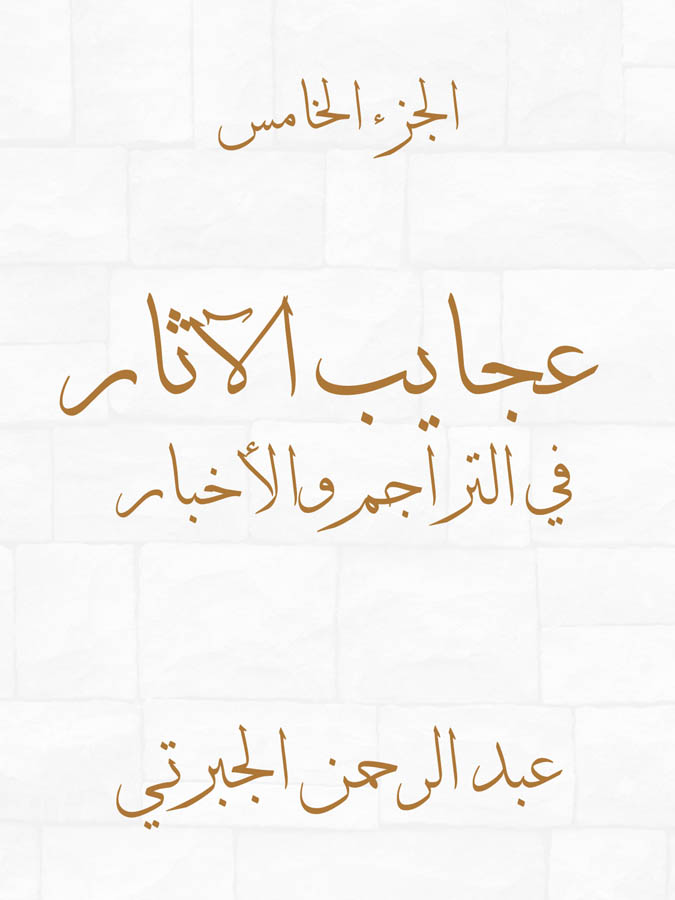 الجزء الخامس
عجايب الآثار
في التراجم والأخبار
عبد الرحمن الجبرتي